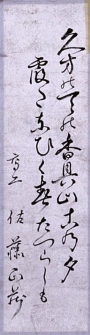 久方の天の香具山この夕
霞たなひく春たつらしも
佐藤